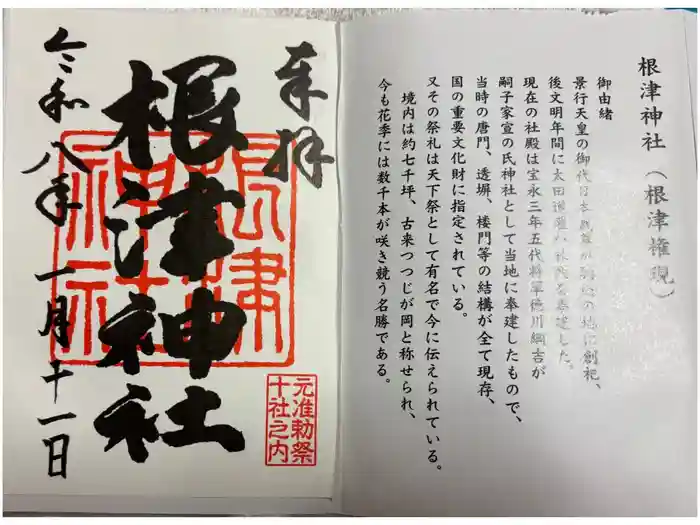 根津神社（根津権現）
御由緒
景行天皇の御代日本武尊がの地に創祀、
後文明年間に太田道灌が社殿を奉建した。
現在の社殿は宝永三年五代将軍徳川綱吉が
嗣子家宣の氏神社として当地に奉建したもので、
当時の唐門、透塀、楼門等の結構が全て現存、
国の重要文化財に指定されている。
又その祭礼は天下祭として有名で今に伝えられている。
境内は約七千坪、古来つつじが岡と称せられ、
今も花季には数千本が咲き競う名勝である。
奉拝
元准勅祭
十社之内
根津神社
根津
神社
令和八年 一月十一日